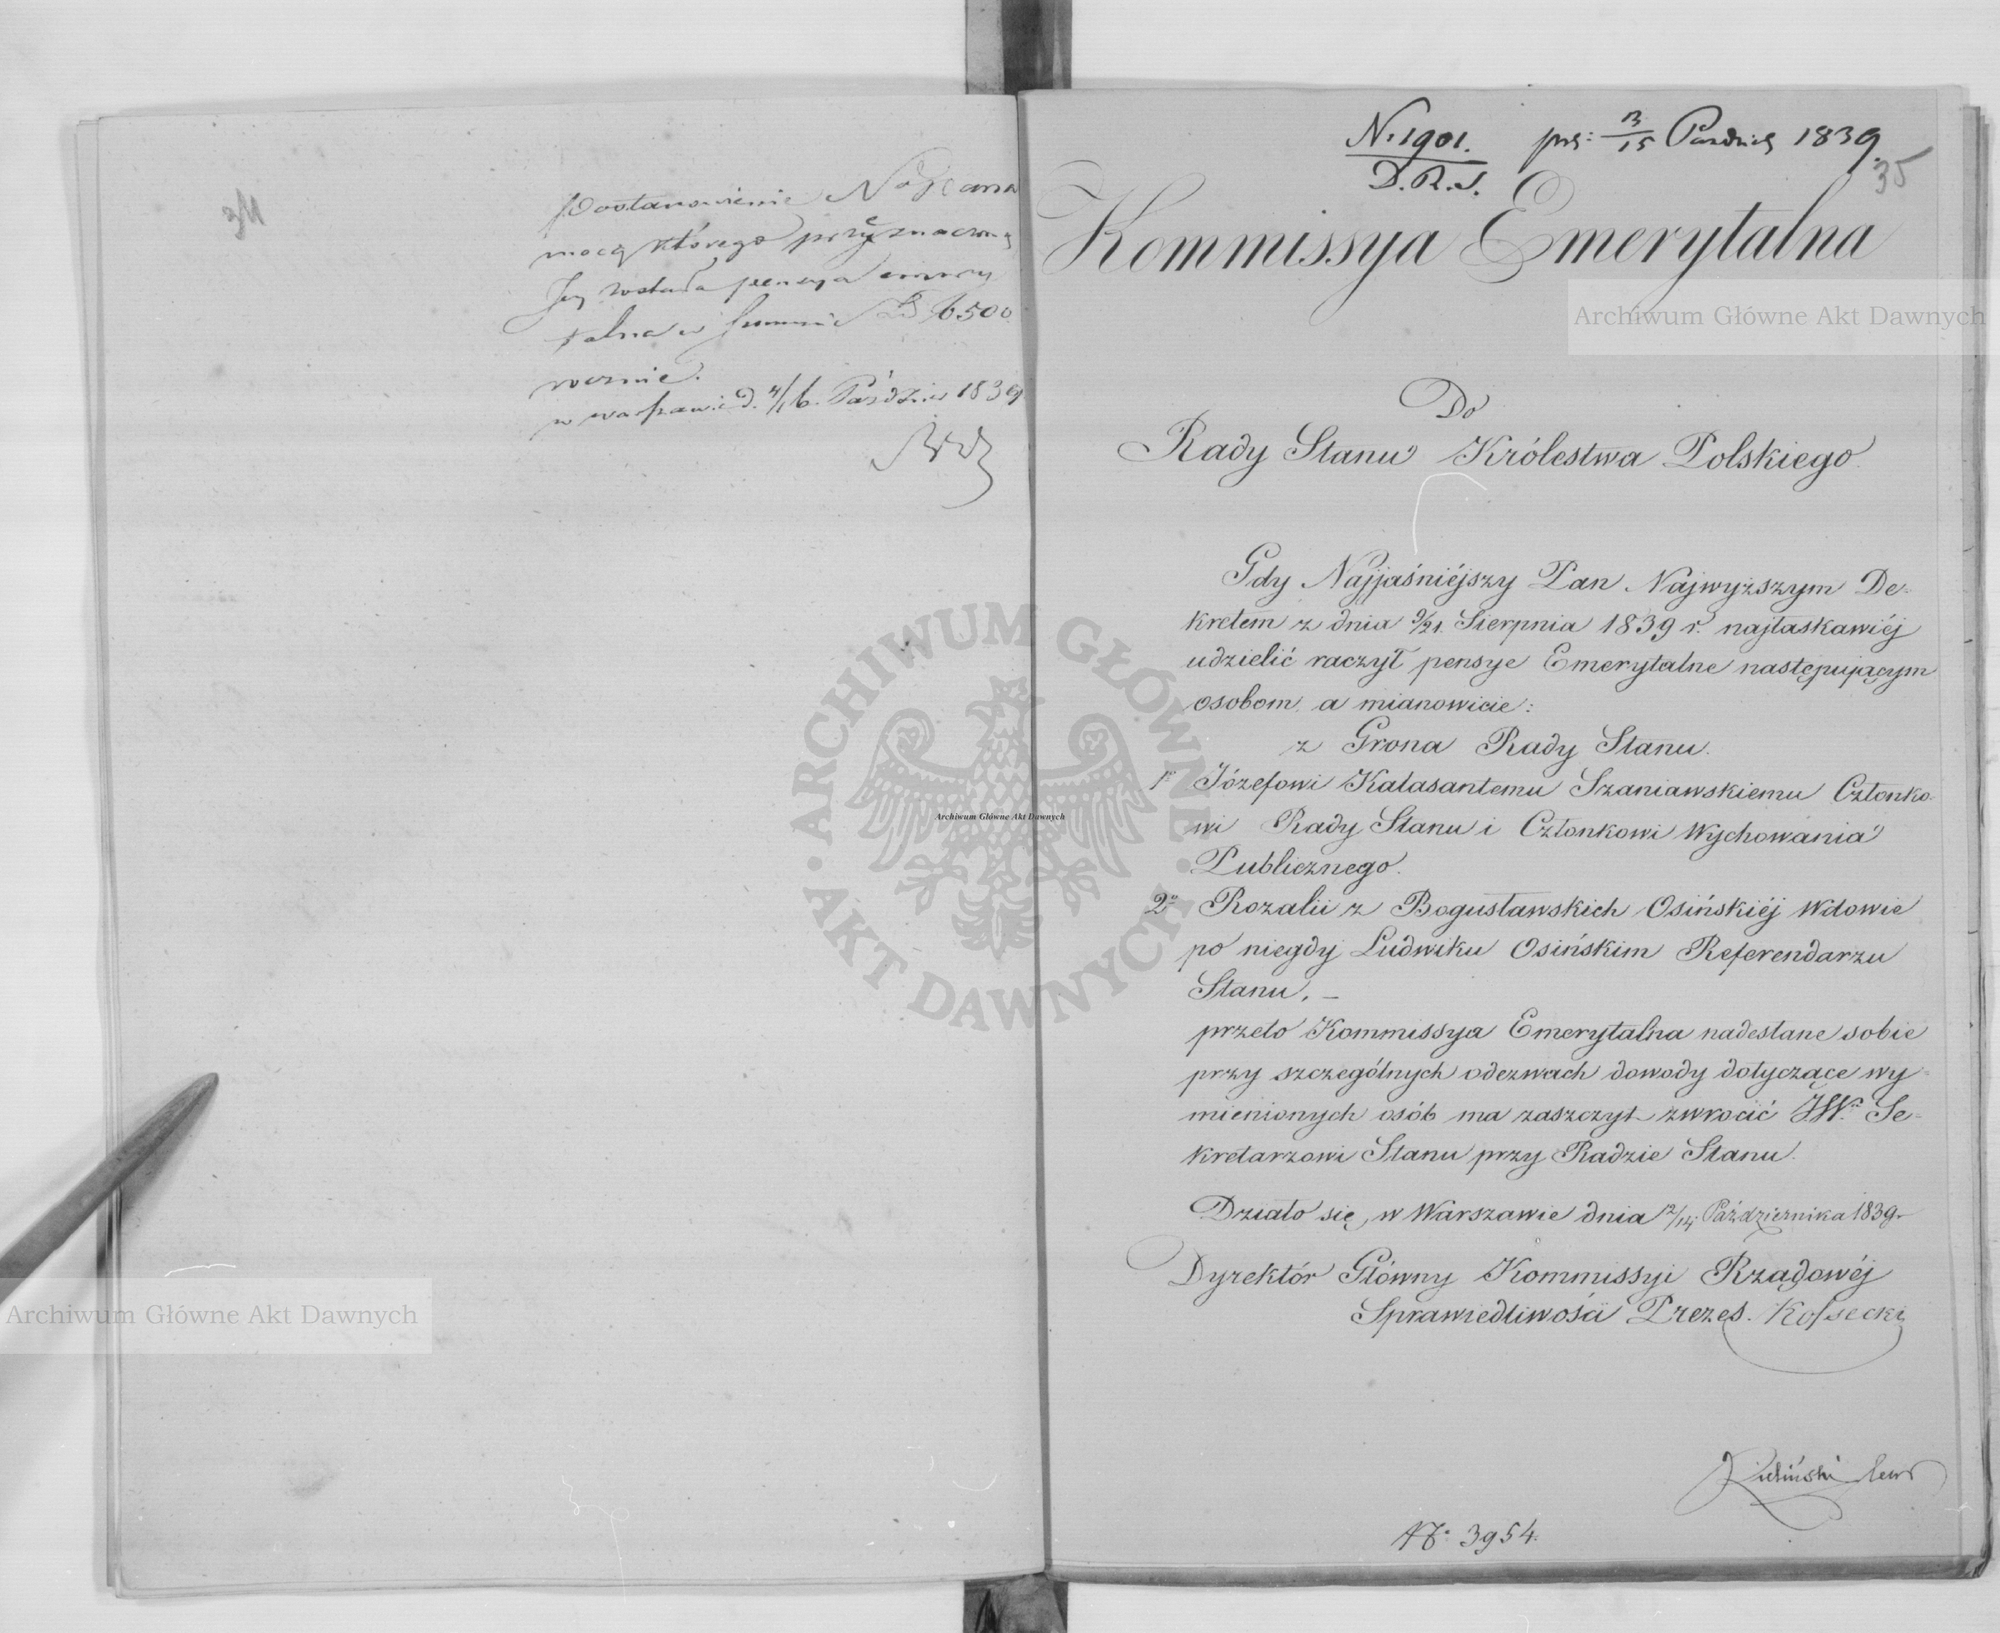 34
Postanowienie N Pana
mocą którego przeznaczoną
Jey została pensya emery
talna w summie Zł 6500
rocznie.
w Warszawie d. 4/16 Paździer 1839
N. 1901. prs: 3/15 Paźdnik 1839
D.R.S.
35
Kommissya Emerytalna
Do
Rady Stanu Królestwa Polskiego.
Gdy Najjaśniéjszy Pan Najwyższym De-
kretem z dnia 9/21. Sierpnia 1839 r. najłaskawiéj
udzielić raczył pensye Emerytalne następującym
osobom, a mianowicie:
z Grona Rady Stanu.
1o Józefowi Kalasantemu Szaniawskiemu Członko-
wi Rady Stanu i Członkowi Wychowania
Publicznego.
2o Rozalii z Bogusławskich Osińskiéj Wdowie
po niegdy Ludwiku Osińskim Referendarzu
Stanu. –
przeto Kommissya Emerytalna nadesłane sobie
przy szczególnych odezwach dowody dotyczące wy-
mienionych osób ma zaszczyt zwrocić JW. Se-
kretarzowi Stanu przy Radzie Stanu.
Działo się, w Warszawie dnia 2/14 Października 1839 r.
Dyrektór Główny Kommissyi Rządowéj
Sprawiedliwości Prezes. Kossecki
No 3954.
Archiwum Główne Akt Dawnych
Archiwum Główne Akt Dawnych
Archiwum Główne Akt Dawnych
ARCHIWUM GŁÓWNE · AKT DAWNYCH ·